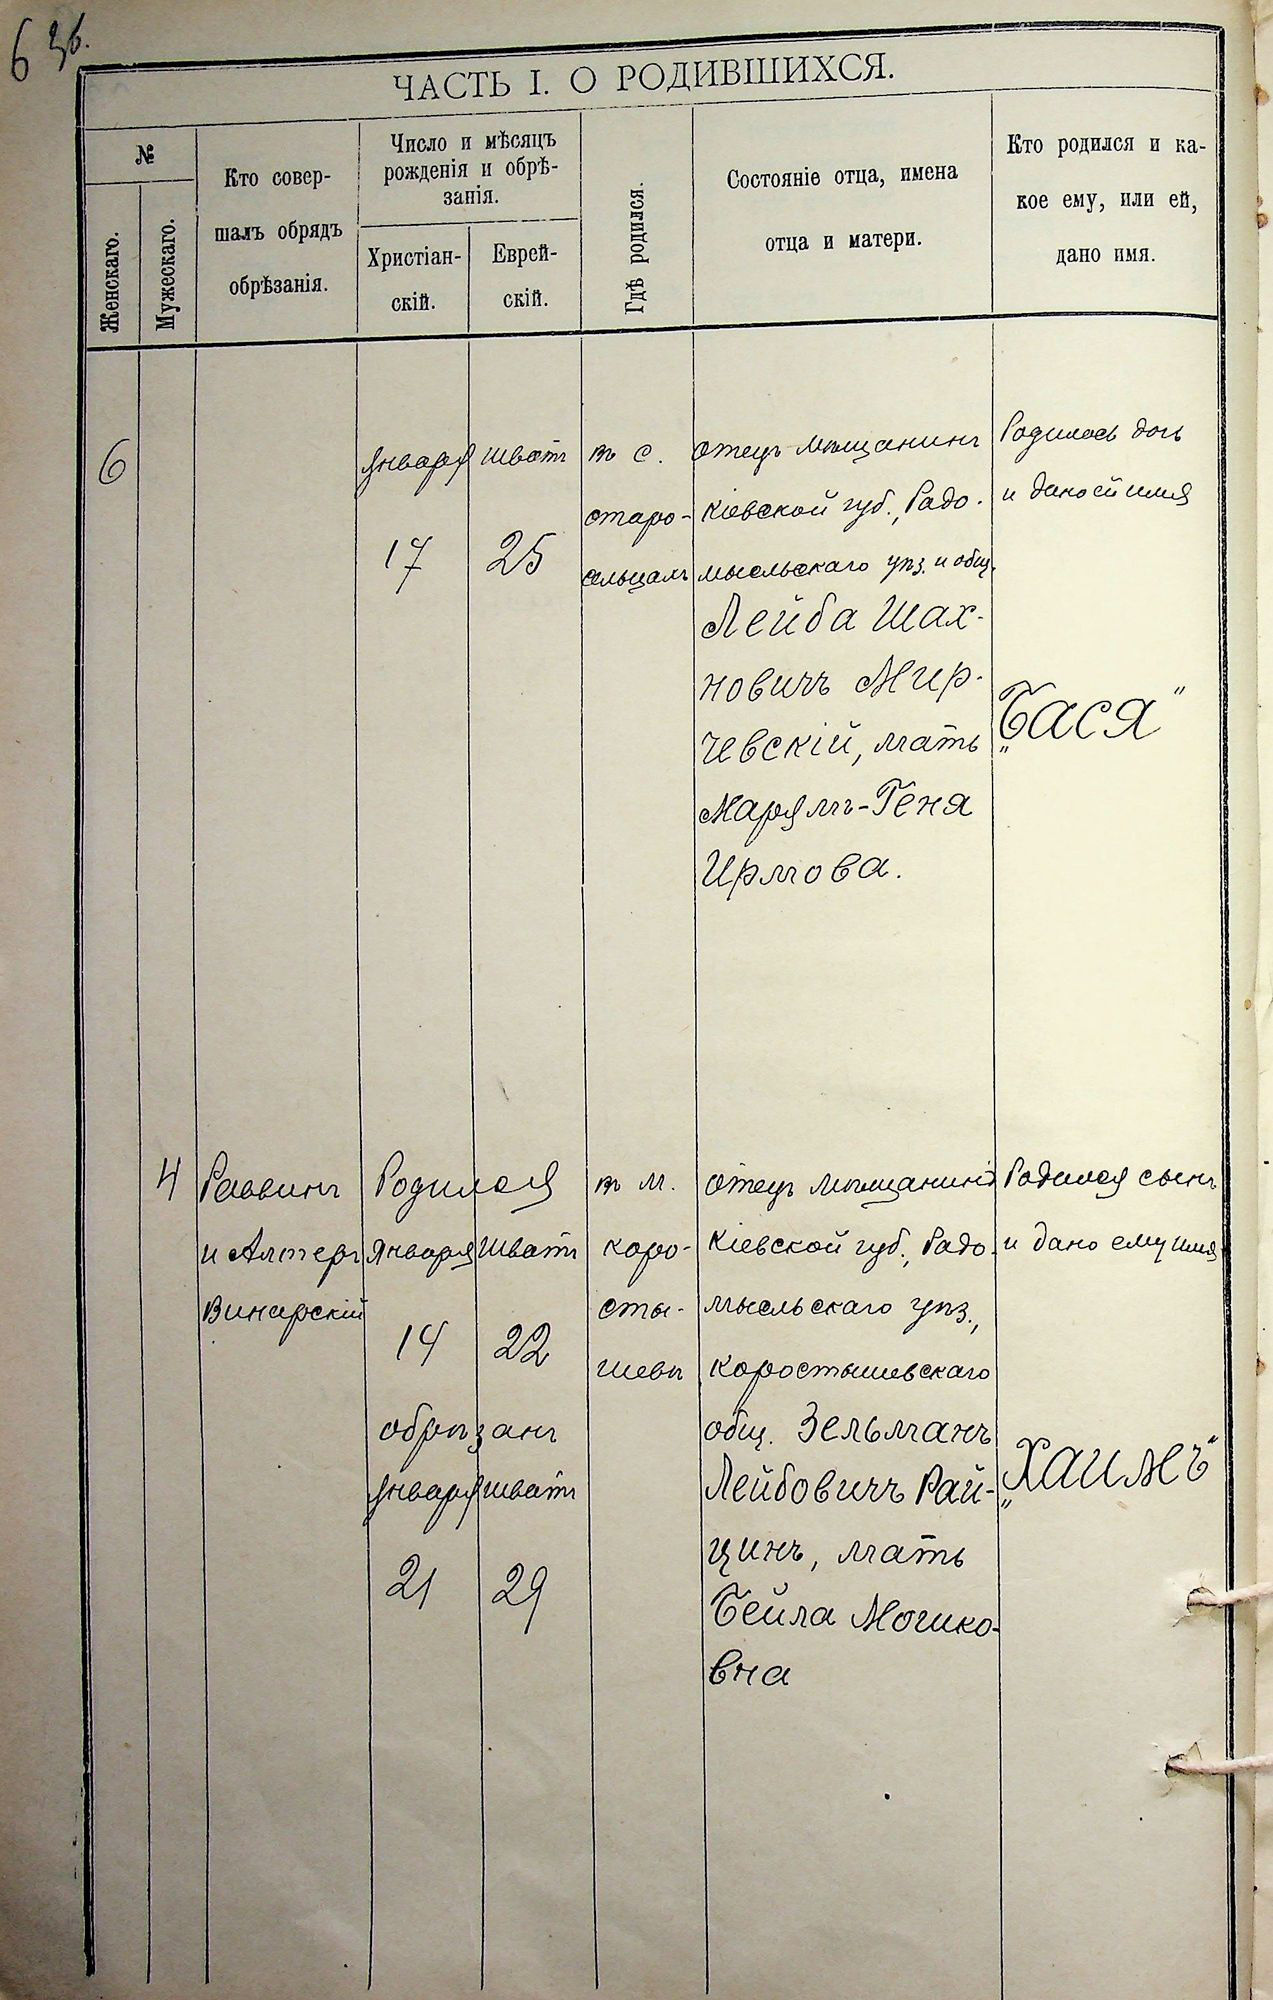 6 зб.
ЧАСТЬ I. О РОДИВШИХСЯ.
№
Женскаго.
Мужескаго.
Кто совер-
шалъ обрядъ
обрѣзанія.
Число и мѣсяцъ
рожденія и обрѣ-
занія.
Христіан-
скій.
Еврей-
скій.
Гдѣ родился.
Состояніе отца, имена
отца и матери.
Кто родился и ка-
кое ему, или ей,
дано имя.
6
января
17
шватъ
25
въ с.
старо-
сельцамъ
отецъ мѣщанинъ
кіевской губ., Радо-
мысльскаго уѣз. и общ.
Лейба Шах-
новичъ Мир-
чевскій, мать
Марямъ-Геня
Ирмова.
Родилось дочь
и дано ей имя
„Бася"
4
Раввинъ
и Алтеръ
Винарскій
Родился
января шватъ
14 22
обрѣзанъ
января шватъ
21 29
въ м.
коро-
сты-
шевѣ
отецъ мѣщанинъ
кіевской губ., Радо-
мысльскаго уѣз.,
коростышевскаго
общ. Зельманъ
Лейбовичъ Рай-
цинъ, мать
Бейла Мошко-
вна
Родился сынъ
и дано ему имя
„Хаимъ"